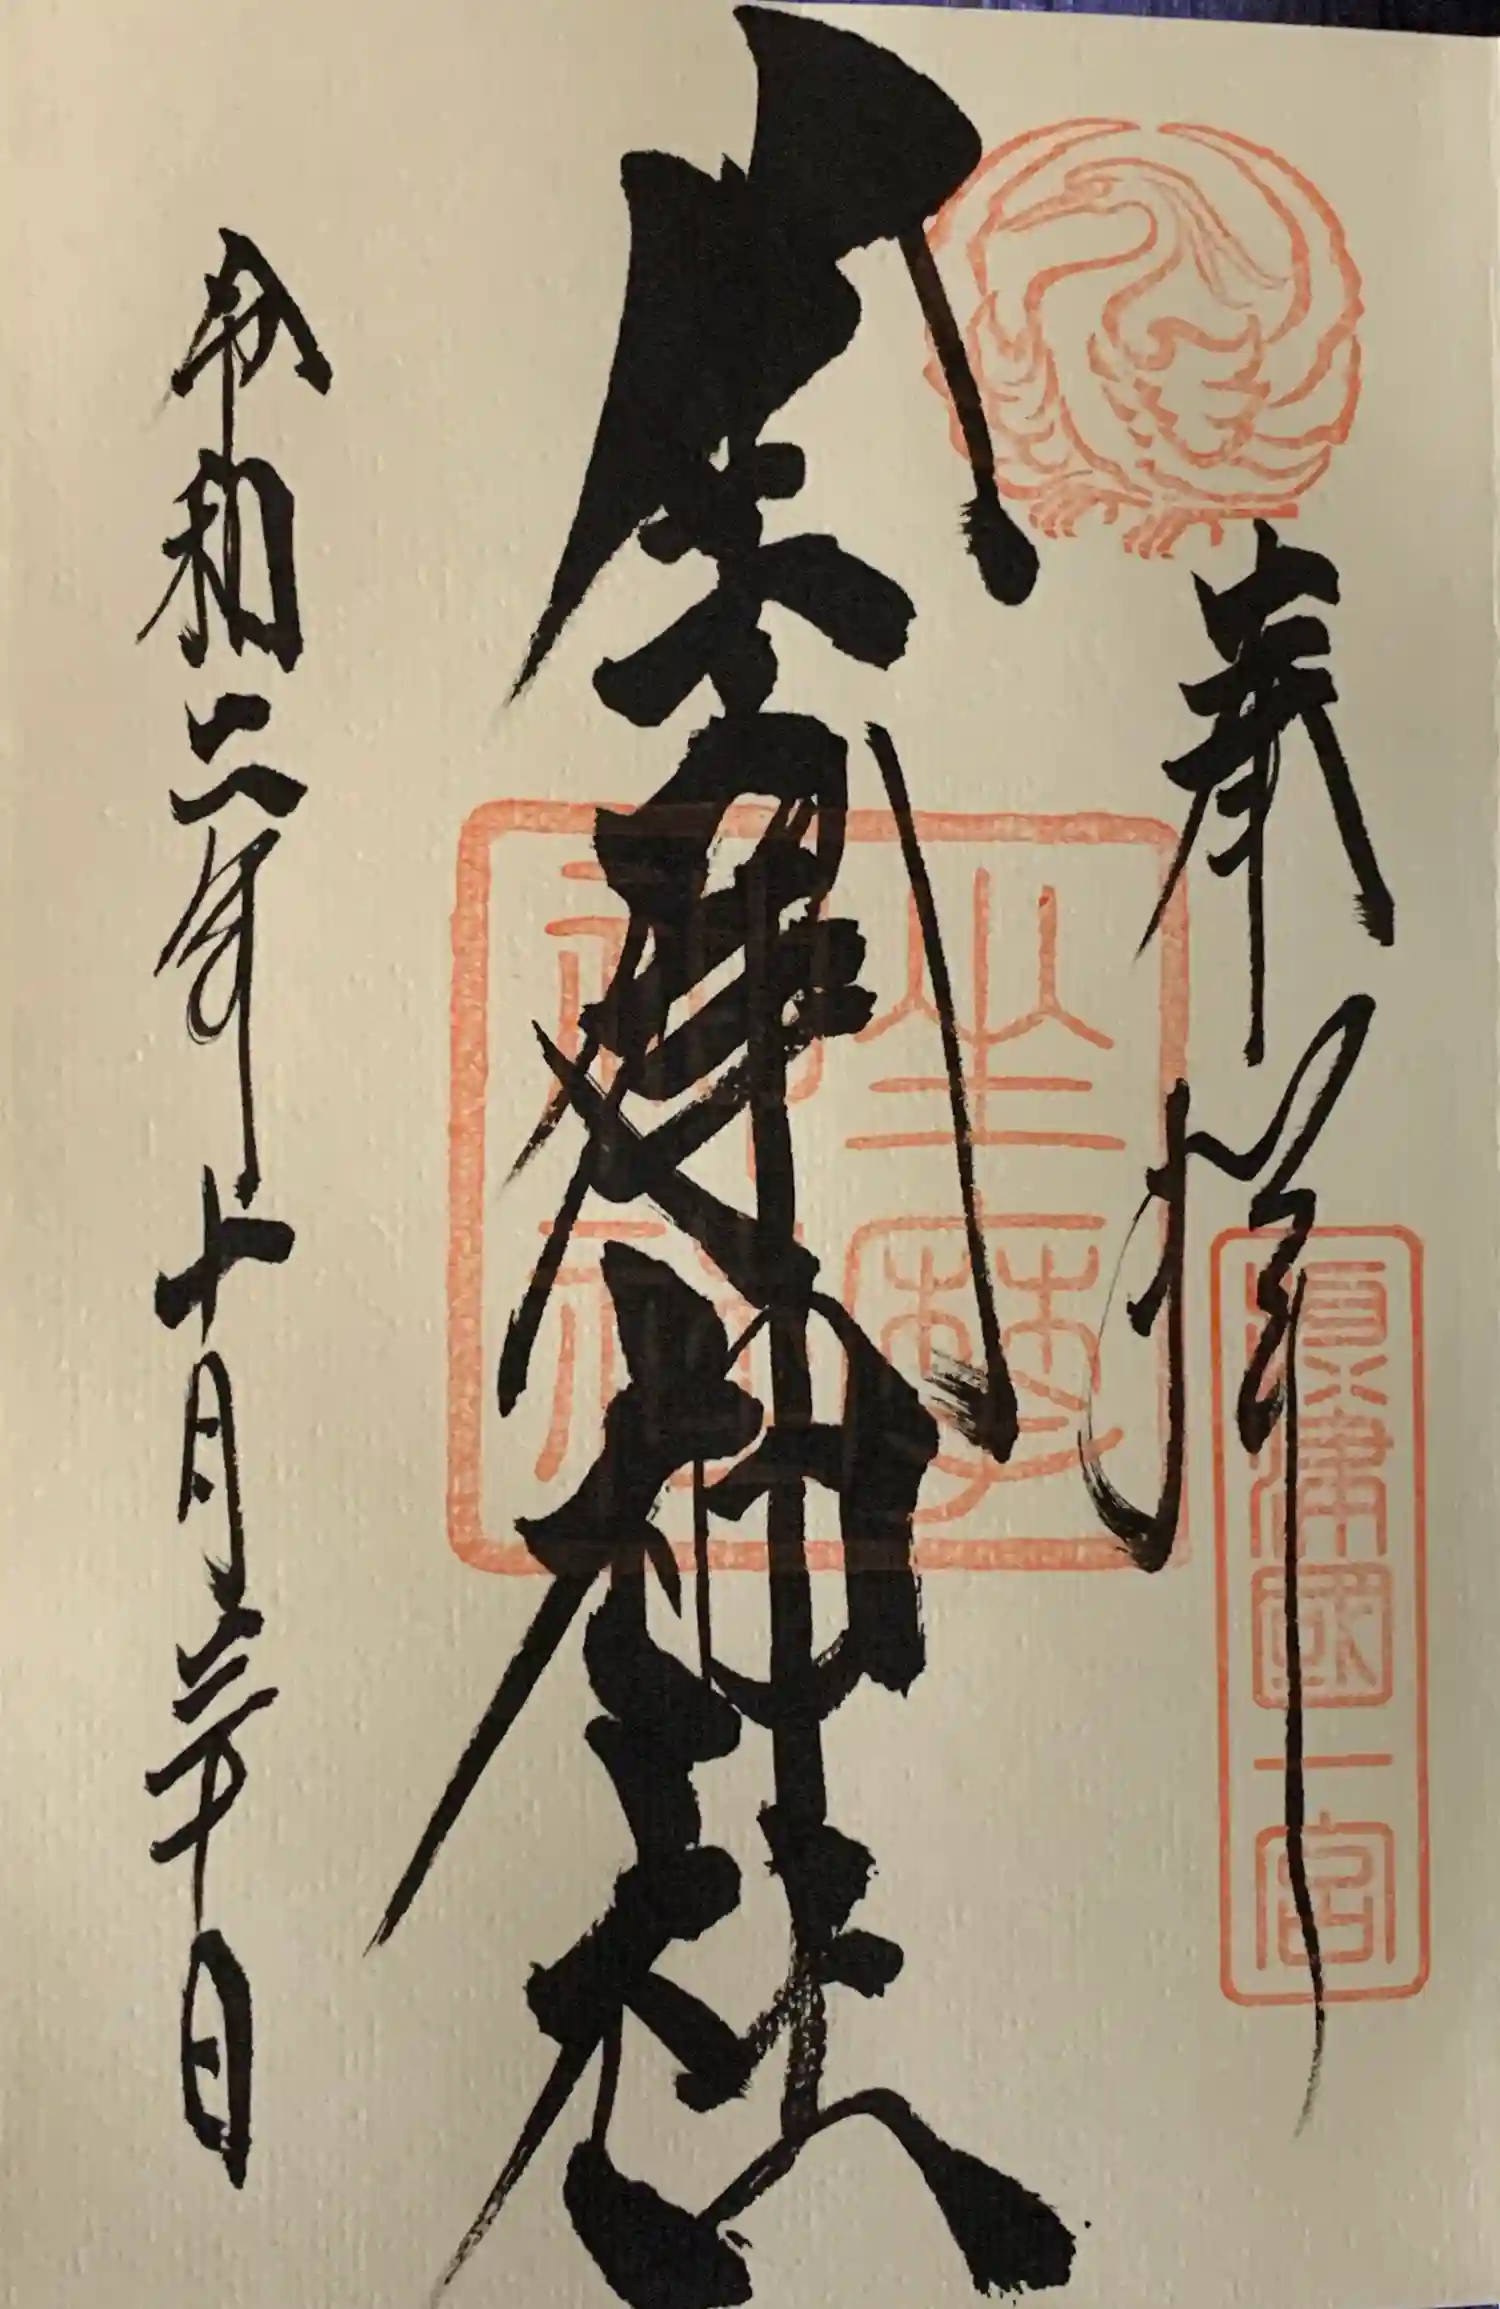 奉拝
攝津國一宮
坐摩神社
坐摩
神社
令和二年十月三十日